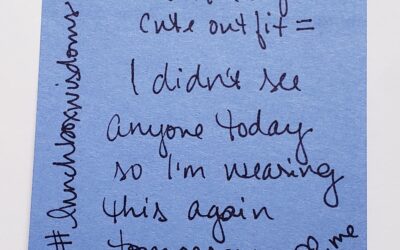 cute outfit =
I didn't see
anyone today
so I'm wearing
this again
tomorrow
#lunchboxwisdoms